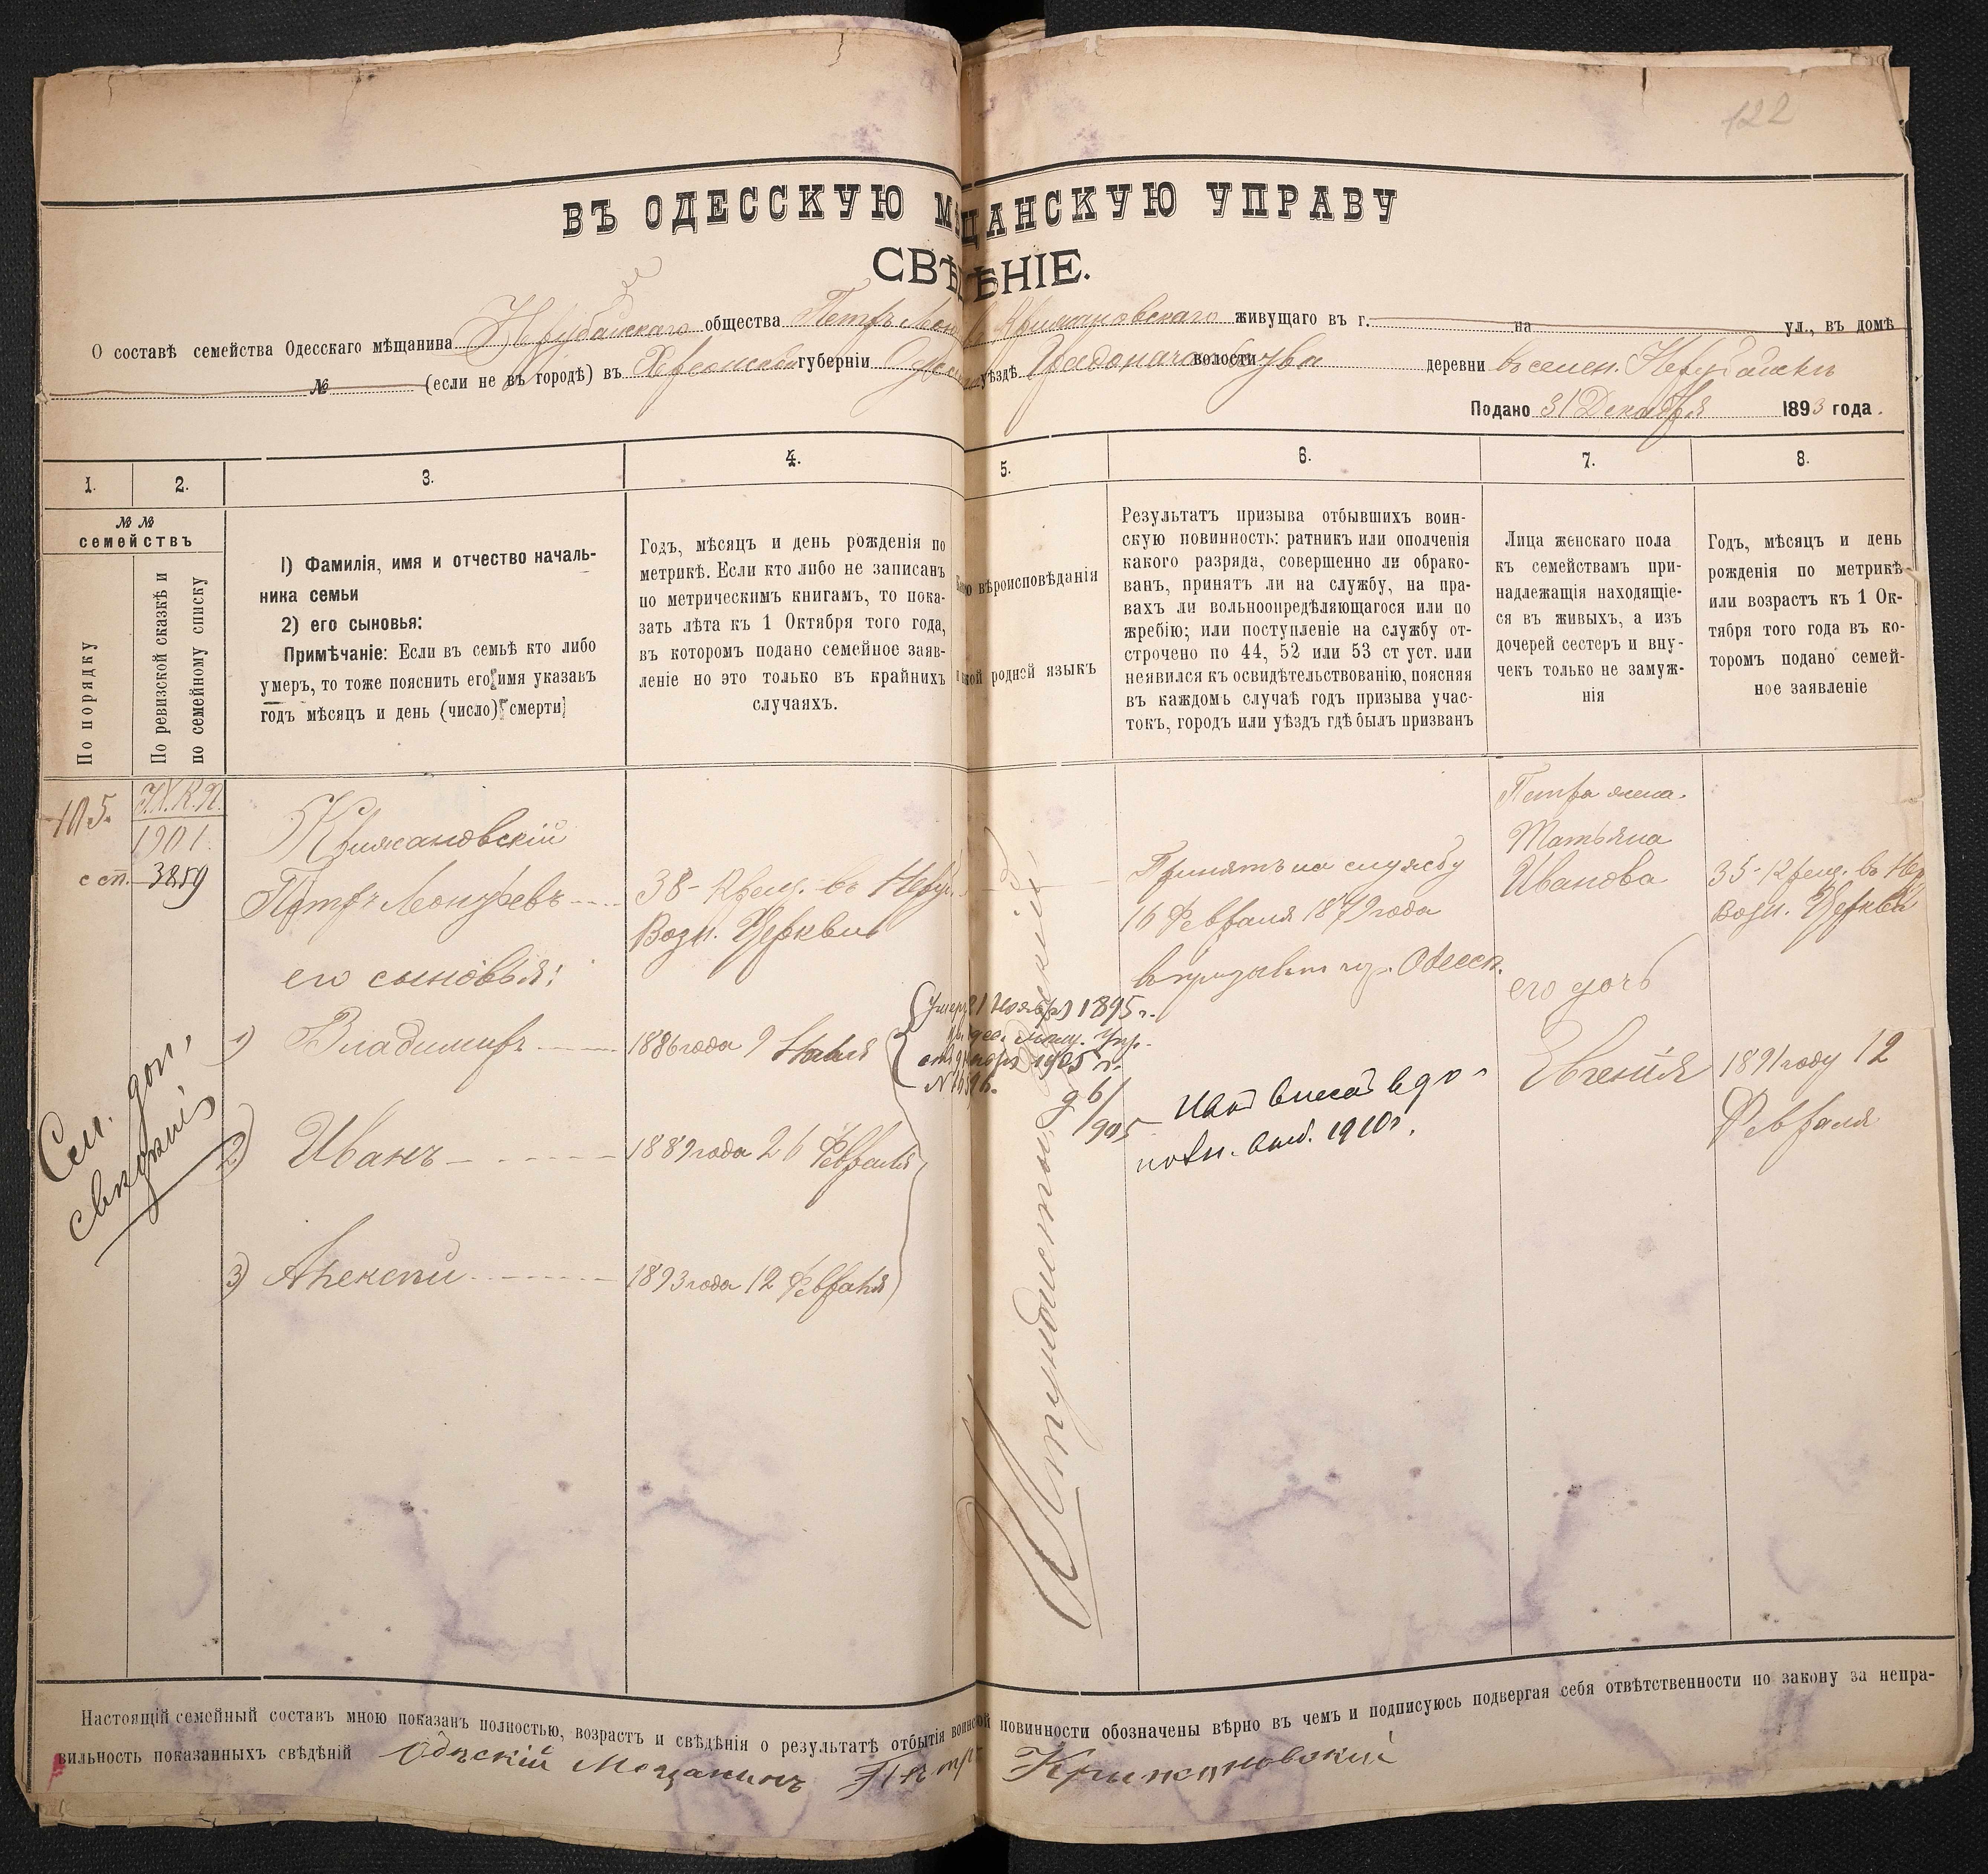 122
ВЪ ОДЕССКУЮ МѢЩАНСКУЮ УПРАВУ
СВѢДѢНІЕ.
О составѣ семейства Одесскаго мѣщанина Нерубайскаго общества Петръ Крижановскаго живущаго въ г. на ул., въ домѣ
№ (если не въ городѣ) въ Херсонской губерніи уѣздѣ Градоначальства волости деревни
Подано 31 Декабря 1893 года.
1. 2. 3. 4. 5. 6. 7. 8.
№ №
семействъ
По порядку
По ревизской сказкѣ и
по семейному списку
1) Фамилія, имя и отчество началь-
ника семьи
2) его сыновья:
Примѣчаніе: Если въ семьѣ кто либо
умеръ, то тоже пояснить его имя указавъ
годъ мѣсяцъ и день (число) смерти
Годъ, мѣсяцъ и день рожденія по
метрикѣ. Если кто либо не записанъ
по метрическимъ книгамъ, то пока-
зать лѣта къ 1 Октября того года,
въ которомъ подано семейное заяв-
леніе но это только въ крайнихъ
случаяхъ.
вѣроисповѣданія
родней языкъ
Результатъ призыва отбывшихъ воин-
скую повинность: ратникъ или ополченія
какого разряда, совершенно ли обрако-
ванъ, принятъ ли на службу, на пра-
вахъ ли вольноопредѣляющагося или по
жребію; или поступленіе на службу от-
строчено по 44, 52 или 53 ст уст. или
неявился къ освидѣтельствованію, поясняя
въ каждомъ случаѣ годъ призыва учас-
токъ, городъ или уѣздъ гдѣ былъ призванъ
Лица женскаго пола
къ семействамъ при-
надлежащія находящіе-
ся въ живыхъ, а изъ
дочерей сестеръ и вну-
чекъ только не замуж-
нія
Годъ, мѣсяцъ и день
рожденія по метрикѣ
или возрастъ къ 1 Ок-
тября того года въ ко-
торомъ подано семей-
ное заявленіе
105.
1901.
с сп. 3859
Крижановскій
Петръ
38
Возн. Церкви
Принятъ на службу
16 Февраля 1879 года
Одесск.
Петра жена
Татьяна
Иванова
35
Возн. Церкви
его сыновья:
1) Владимиръ 1886 года 9
Умеръ 21 Ноября 1895 г.
1905 г.
2) Иванъ 1889 года 26 Февраля
3) Алексѣй 1893 года 12 Февраля
1910 г.
его дочь
Евгенія 1891 году 12
Февраля
См. доп.
свѣдѣніе
Настоящій семейный составъ мною показанъ полностью, возрастъ и свѣдѣнія о результатѣ отбытія воинской повинности обозначены вѣрно въ чемъ и подписуюсь подвергая себя отвѣтственности по закону за непра-
вильность показанныхъ свѣдѣній Одескій Мещанинъ Петръ Крижановскій